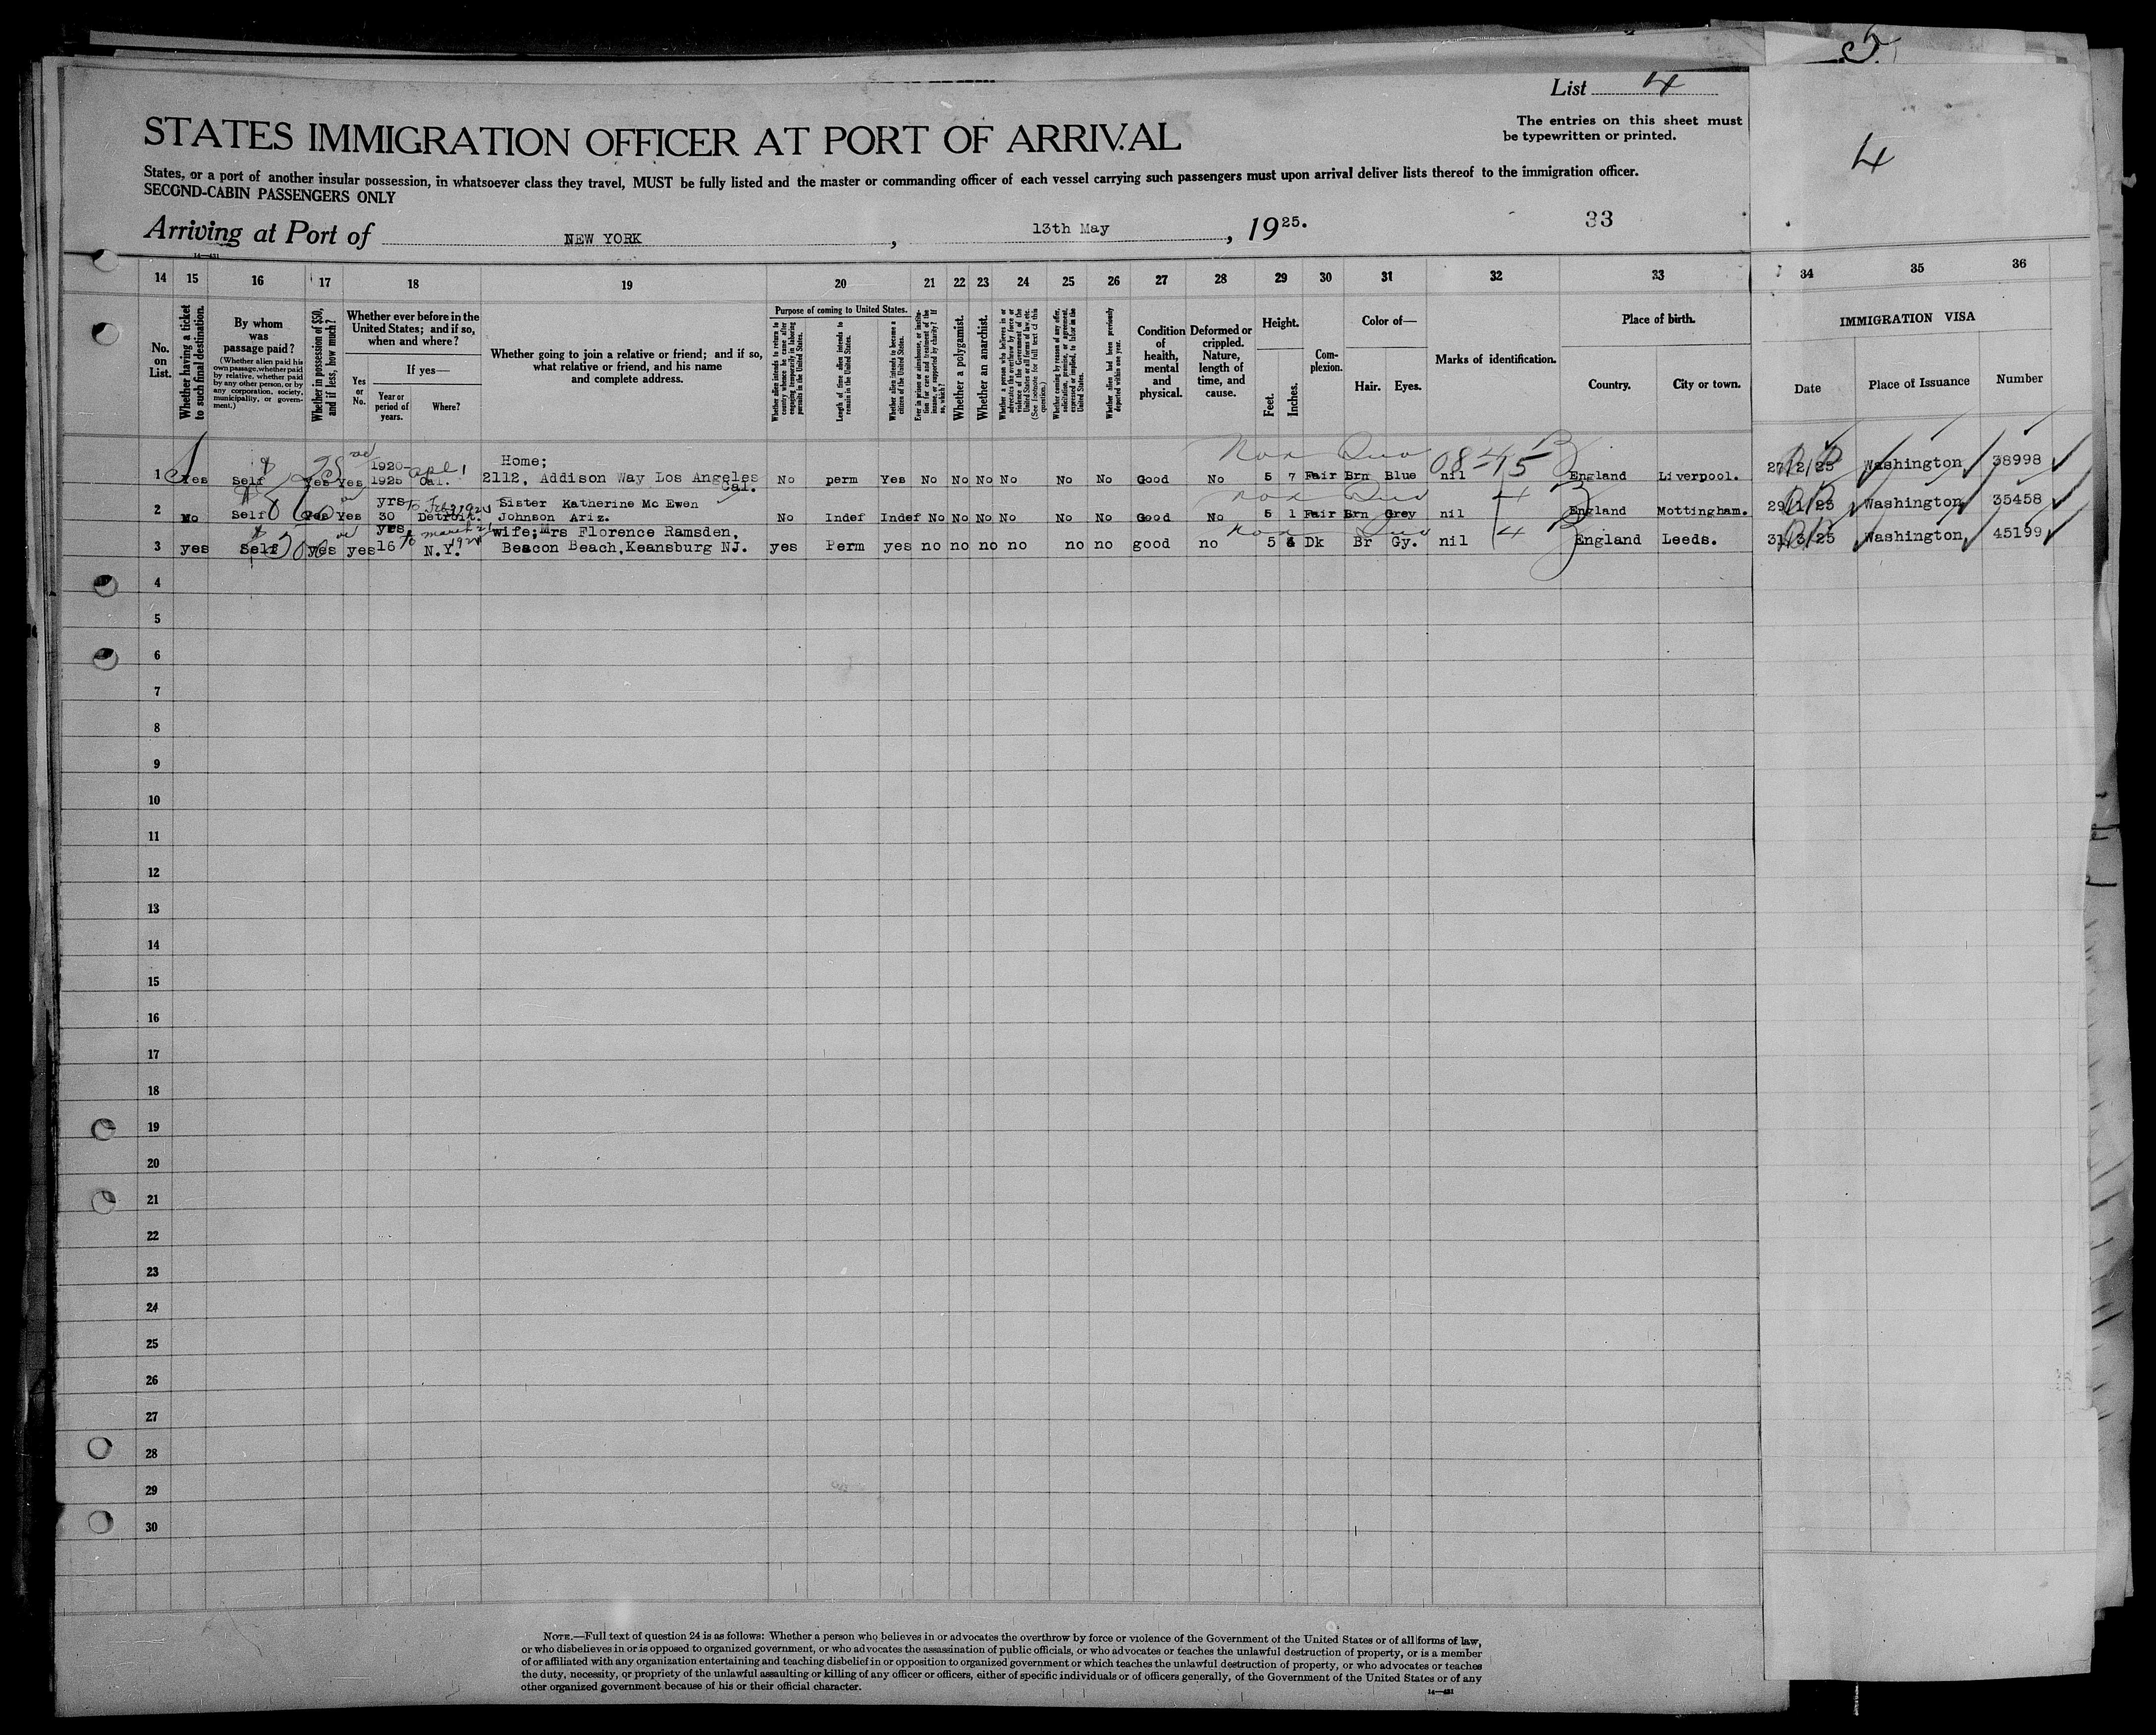 5
List 4
4
The entries on this sheet must
be typewritten or printed.
STATES IMMIGRATION OFFICER AT PORT OF ARRIVAL
States, or a port of another insular possession, in whatsoever class they travel, MUST be fully listed and the master or commanding officer of each vessel carrying such passengers must upon arrival deliver lists thereof to the immigration officer.
SECOND-CABIN PASSENGERS ONLY
Arriving at Port of NEW YORK, 13th May, 1925.
33
14—431
14 15 16 17 18 19 20 21 22 23 24 25 26 27 28 29 30 31 32 33 34 35 36
No. on List.
Whether having a ticket to such final destination.
By whom was passage paid?
(Whether alien paid his own passage, whether paid by relative, whether paid by any other person, or by any corporation, society, municipality, or government.)
Whether in possession of $50, and if less, how much?
Whether ever before in the United States; and if so, when and where?
Yes or No.
If yes—
Year or period of years.
Where?
Whether going to join a relative or friend; and if so, what relative or friend, and his name and complete address.
Purpose of coming to United States.
Whether alien intends to return to country whence he came after engaging temporarily in laboring pursuits in the United States.
Length of time alien intends to remain in the United States.
Whether alien intends to become a citizen of the United States.
Ever in prison or almshouse, or institution for care and treatment of the insane, or supported by charity? If so, which?
Whether a polygamist.
Whether an anarchist.
Whether a person who believes in or advocates the overthrow by force or violence of the Government of the United States or all forms of law, etc. (See footnote for full text of this question.)
Whether coming by reason of any offer, solicitation, promise, or agreement, expressed or implied, to labor in the United States.
Whether alien had been previously deported within one year.
Condition of health, mental and physical.
Deformed or crippled. Nature, length of time, and cause.
Height.
Feet.
Inches.
Complexion.
Color of—
Hair.
Eyes.
Marks of identification.
Place of birth.
Country.
City or town.
IMMIGRATION VISA
Date
Place of Issuance
Number
1 Yes Self Yes Yes 1920-1925 Cal. Home; 2112, Addison Way Los Angeles Cal. No perm Yes No No No No No No Good No 5 7 Fair Brn Blue nil England Liverpool. 27/2/25 Washington 38998
2 No Self Yes Yes yrs 30 Detroit. Sister Katherine Mc Ewen Johnson Ariz. No Indef Indef No No No No No No Good No 5 1 Fair Brn Grey nil England Mottingham. 29/1/25 Washington 35458
3 yes Self yes yes yrs 16 N.Y. wife; Mrs Florence Ramsden, Beacon Beach, Keansburg NJ. yes Perm yes no no no no no no good no 5 Dk Br Gy. nil England Leeds. 31/3/25 Washington 45199
4
5
6
7
8
9
10
11
12
13
14
15
16
17
18
19
20
21
22
23
24
25
26
27
28
29
30
NOTE.—Full text of question 24 is as follows: Whether a person who believes in or advocates the overthrow by force or violence of the Government of the United States or of all forms of law,
or who disbelieves in or is opposed to organized government, or who advocates the assassination of public officials, or who advocates or teaches the unlawful destruction of property, or is a member
of or affiliated with any organization entertaining and teaching disbelief in or opposition to organized government or which teaches the unlawful destruction of property, or who advocates or teaches
the duty, necessity, or propriety of the unlawful assaulting or killing of any officer or officers, either of specific individuals or of officers generally, of the Government of the United States or of any
other organized government because of his or their official character.
14—431